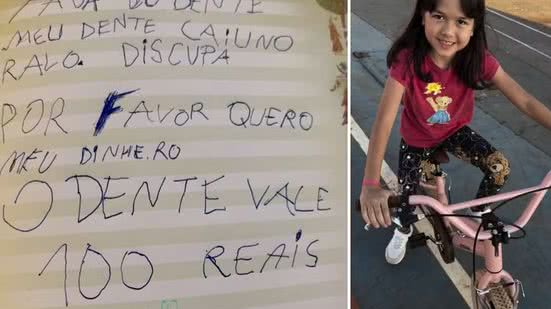 FADA DO DENTE
MEU DENTE CAIU NO
RALO. DISCUPA
POR FAVOR QUERO
MEU DINHE.RO
O DENTE VALE
100 REAIS